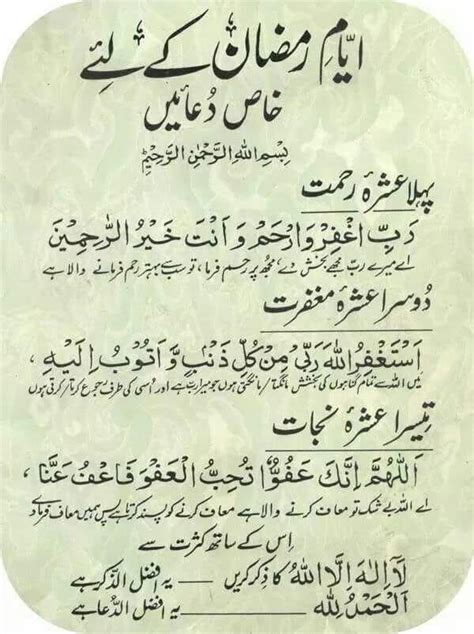 ایّامِ رمضان کے لئے
خاص دُعائیں
بِسْمِ اللهِ الرَّحْمٰنِ الرَّحِيْمِ
پہلا عشرۂ رحمت
رَبِّ اغْفِرْ وَارْحَمْ وَاَنْتَ خَيْرُ الرّٰحِمِيْنَ
اے میرے رب مجھے بخش دے، مجھ پر رحم فرما، تو سب سے بہتر رحم فرمانے والا ہے
دُوسرا عشرۂ مغفرت
اَسْتَغْفِرُ اللهَ رَبِّیْ مِنْ كُلِّ ذَنْۢبٍ وَّاَتُوْبُ اِلَيْهِ
میں اللہ سے تمام گناہوں کی بخشش مانگتا/مانگتی ہوں جو میرا رب ہے اور اُسی کی طرف رجوع کرتا/کرتی ہوں
تیسرا عشرۂ نجات
اَللّٰهُمَّ اِنَّكَ عَفُوٌّ تُحِبُّ الْعَفْوَ فَاعْفُ عَنَّا
اے اللہ بے شک تو معاف کرنے والا ہے معاف کرنے کو پسند کرتا ہے پس ہمیں معاف فرما دے
اِس کے ساتھ کثرت سے
لَآ اِلٰهَ اِلَّا اللهُ کا ذکر کریں — یہ افضل الذّکر ہے
اَلْحَمْدُ لِلّٰهِ — یہ افضل الدُّعا ہے